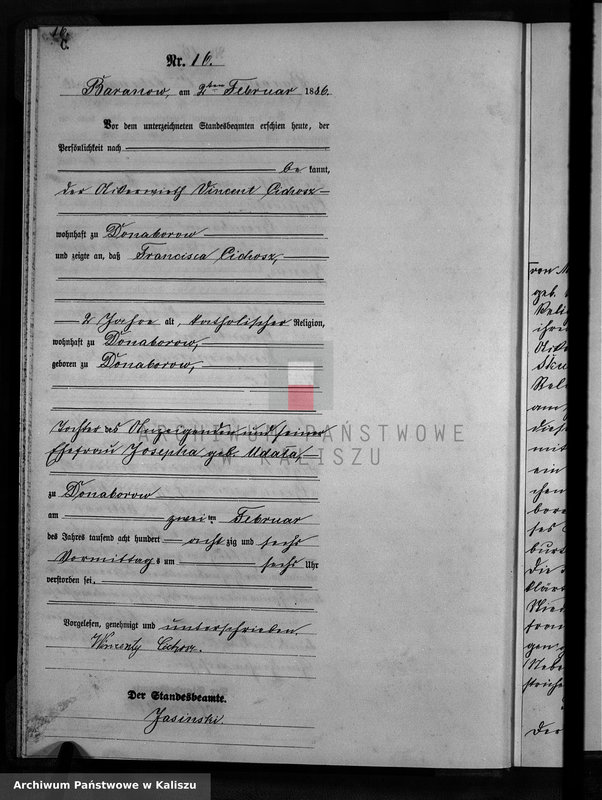 16.
C.
Nr. 16.
Baranow, am 2ten Februar 1886.
Vor dem unterzeichneten Standesbeamten erschien heute, der
Persönlichkeit nach
be kannt,
der Ackerwirth Vincent Cichosz
wohnhaft zu Donaborow
und zeigte an, daß Francisca Cichosz,
2 Jahre alt, katholischer Religion,
wohnhaft zu Donaborow,
geboren zu Donaborow,
Tochter des Anzeigenden und seiner
Ehefrau Josepha geb. Udala,
zu Donaborow
am zwei ten Februar
des Jahres tausend acht hundert acht zig und sechs
Vormittag s um sechs Uhr
verstorben sei.
Vorgelesen, genehmigt und unterschrieben.
Wincenty Cichosz.
Der Standesbeamte.
Jasinski
ARCHIWUM PAŃSTWOWE
W KALISZU
geb.
ihre
mit
ein
Der
Archiwum Państwowe w Kaliszu